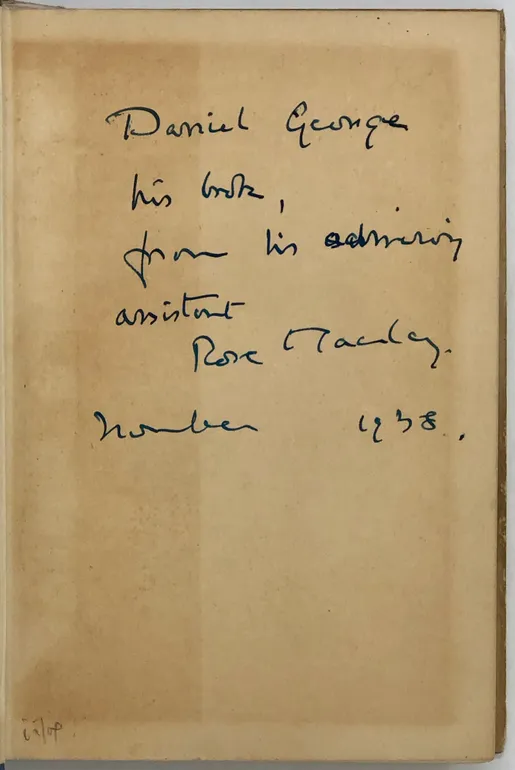 Daniel George
his book,
from his admiring
assistant
Rose Macaulay.
November 1938.